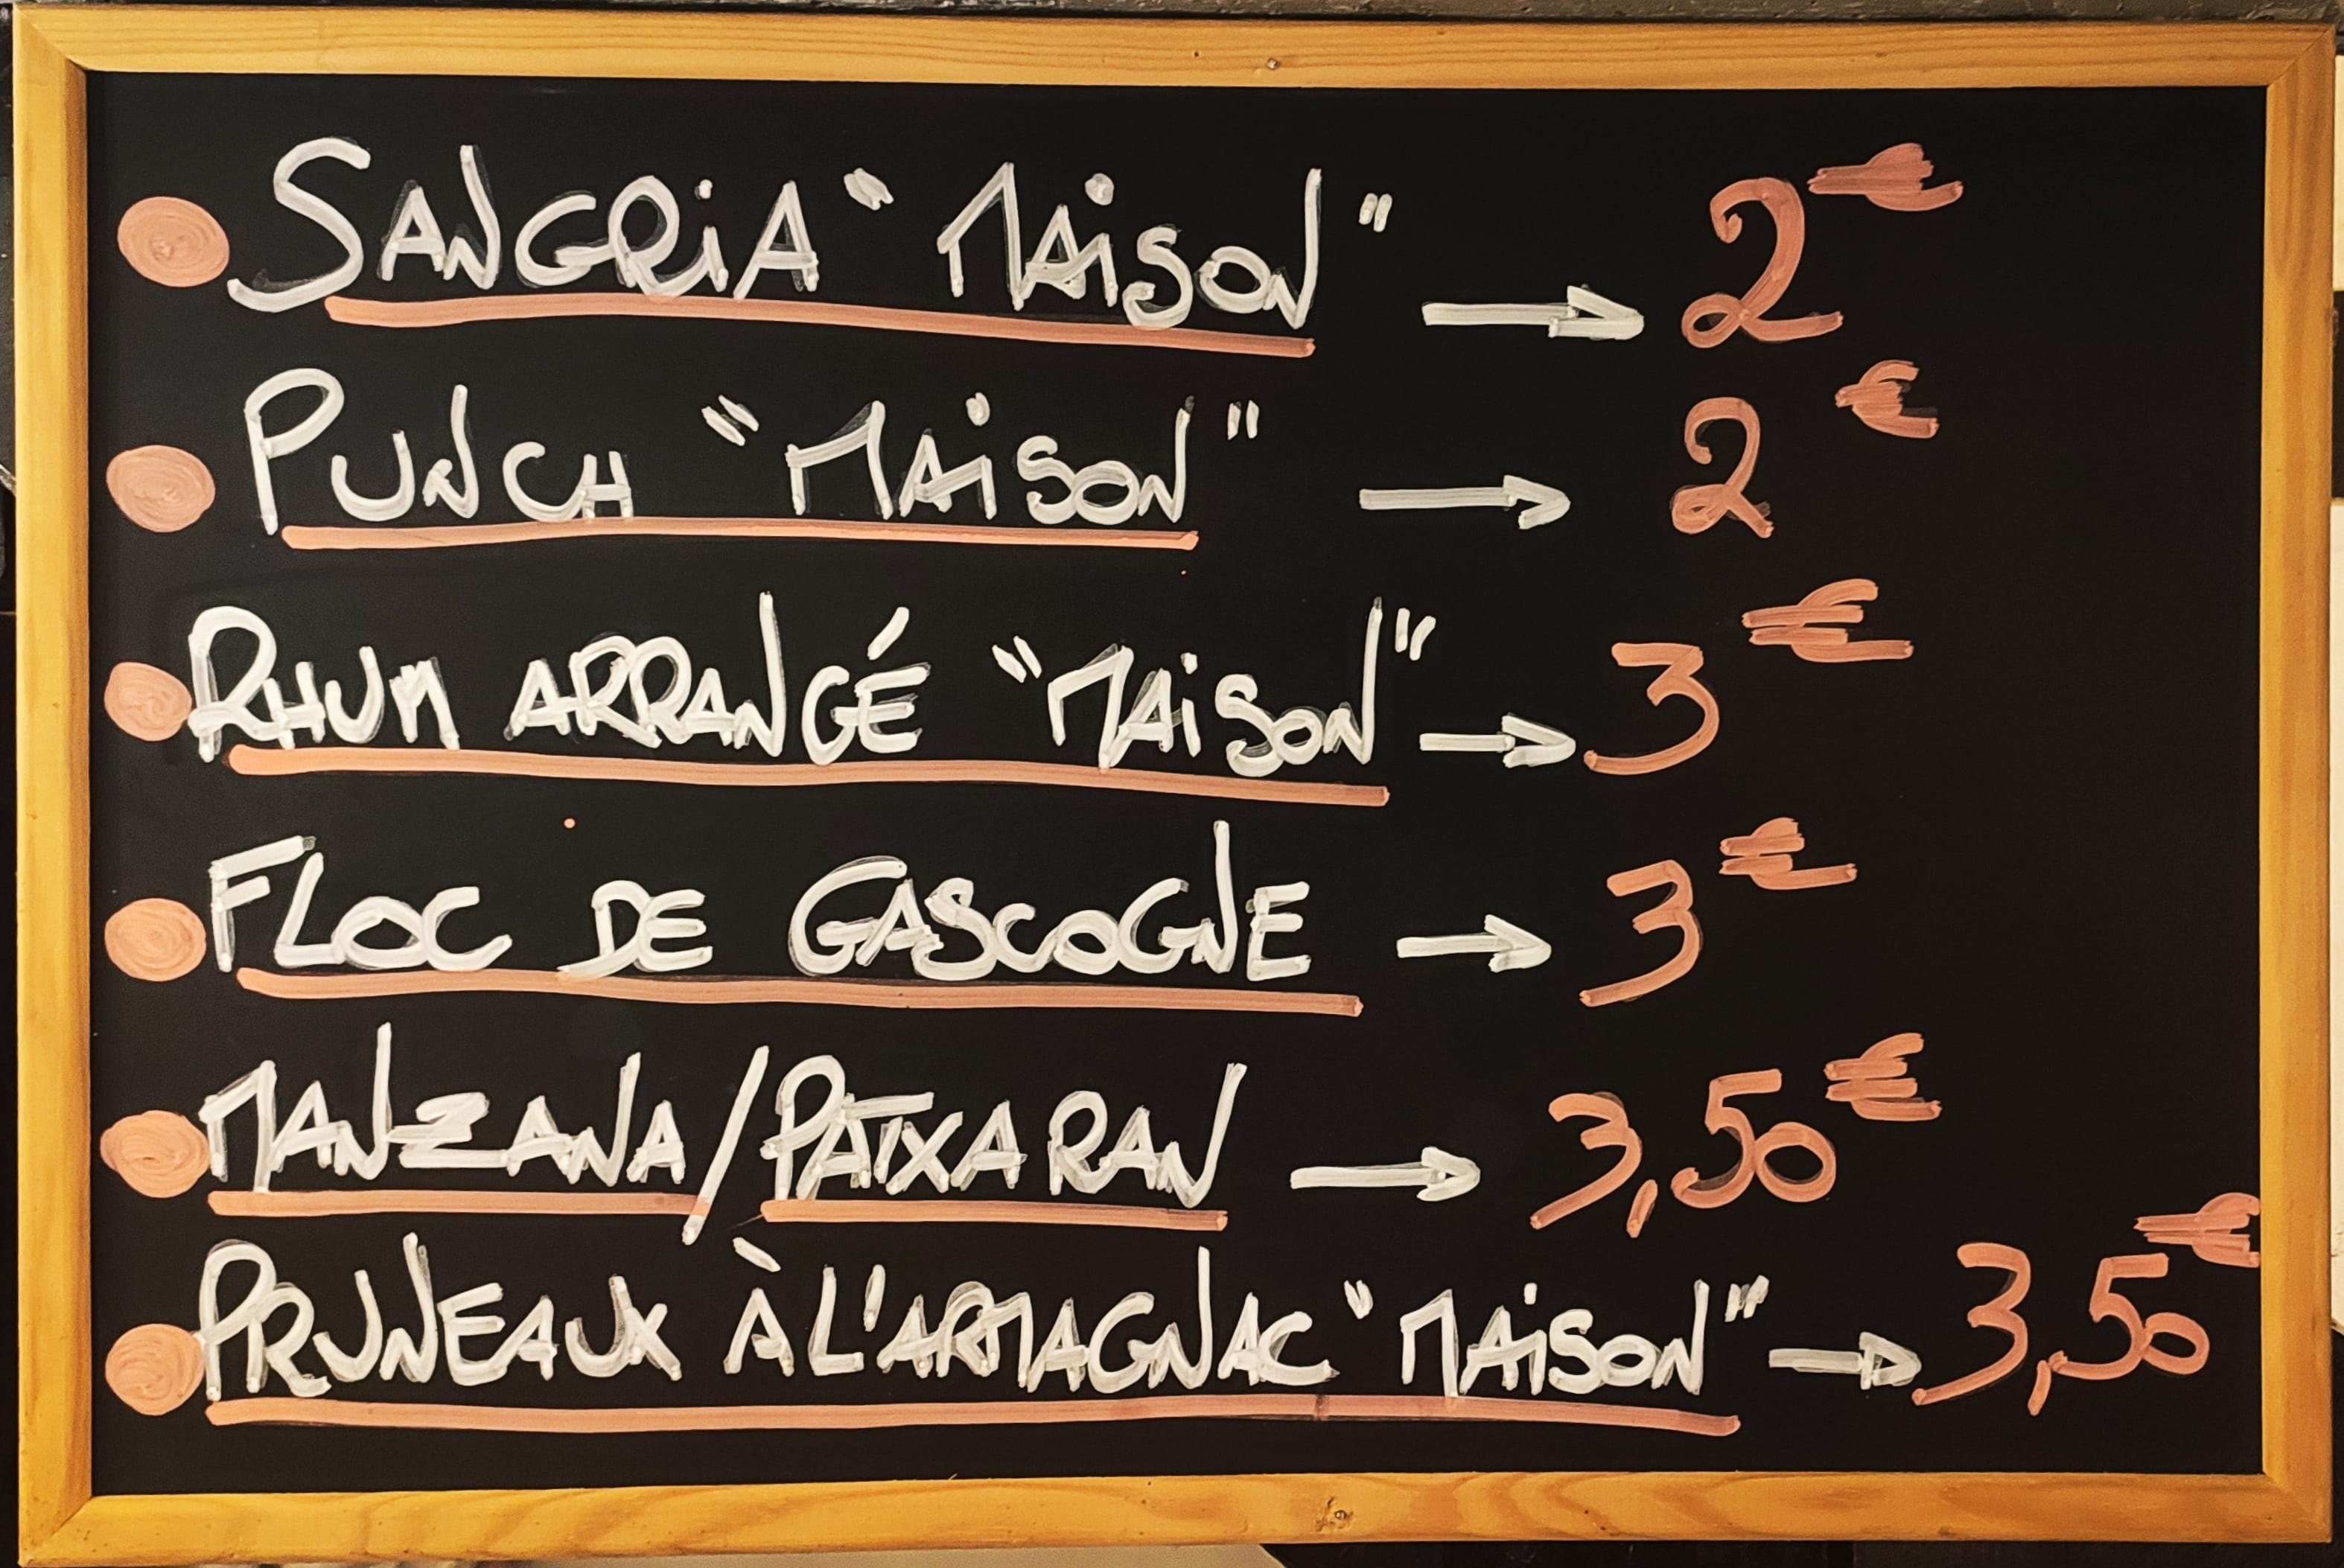 SANGRiA "MAiSON" → 2€
PUNCH "MAiSON" → 2€
RHUM ARRANGÉ "MAiSON" → 3€
FLOC DE GASCOGNE → 3€
MANZANA/PATXARAN → 3,50€
PRUNEAUX À L'ARMAGNAC "MAiSON" → 3,50€